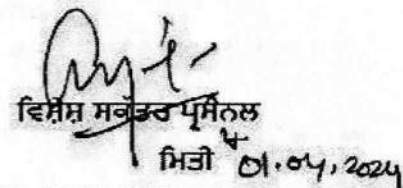 ਵਿਸ਼ੇਸ਼ ਸਕੱਤਰ ਪ੍ਰਸੋਨਲ
ਮਿਤੀ 01.04.2024